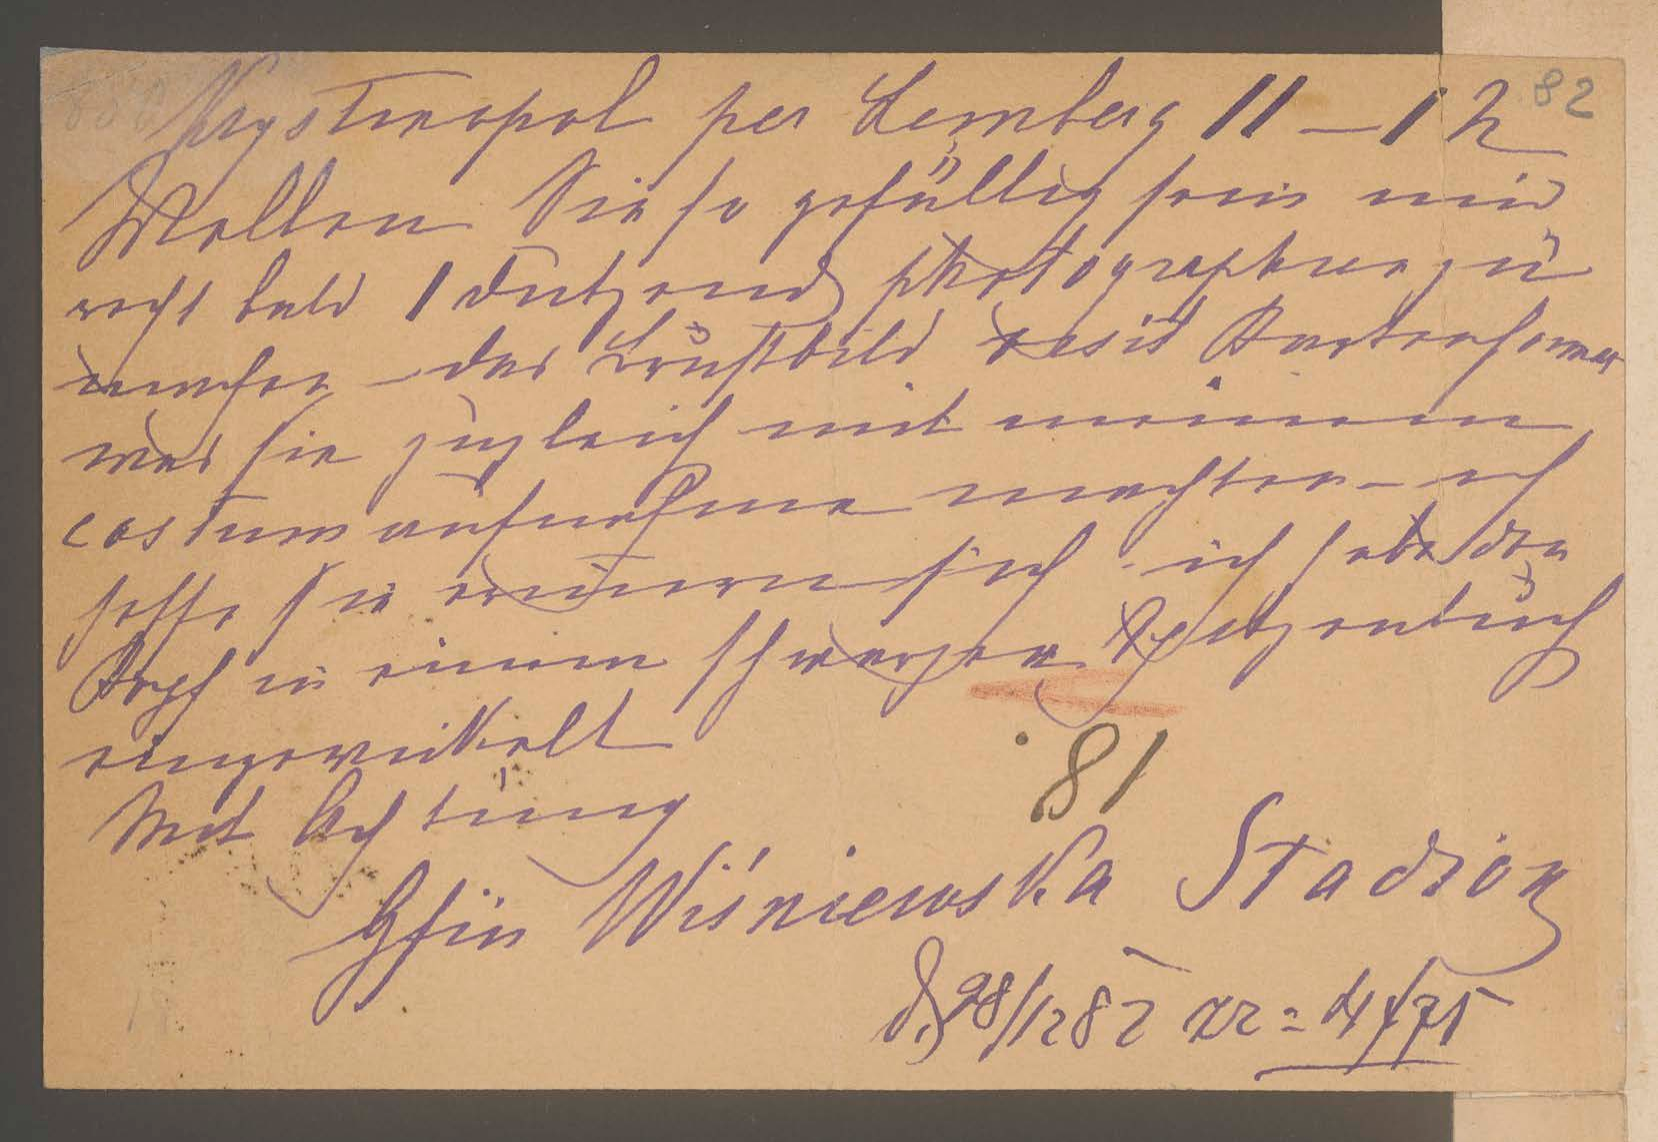 Krystinopol per Lemberg 11–12
82
Wollen Sie so gefällig sein mir
recht bald 1 dutzend photographien zu
machen – das Brustbild visit Kartenformat
was sie zugleich mit meinem
costum aufnahme machten – ich
hoffe sie erinnern sich – ich habe den
Kopf in einem schwarzen Spitzentuch
eingewickelt
81
Mit Achtung
Gfin Wiśniewska Stadion
28/12 82